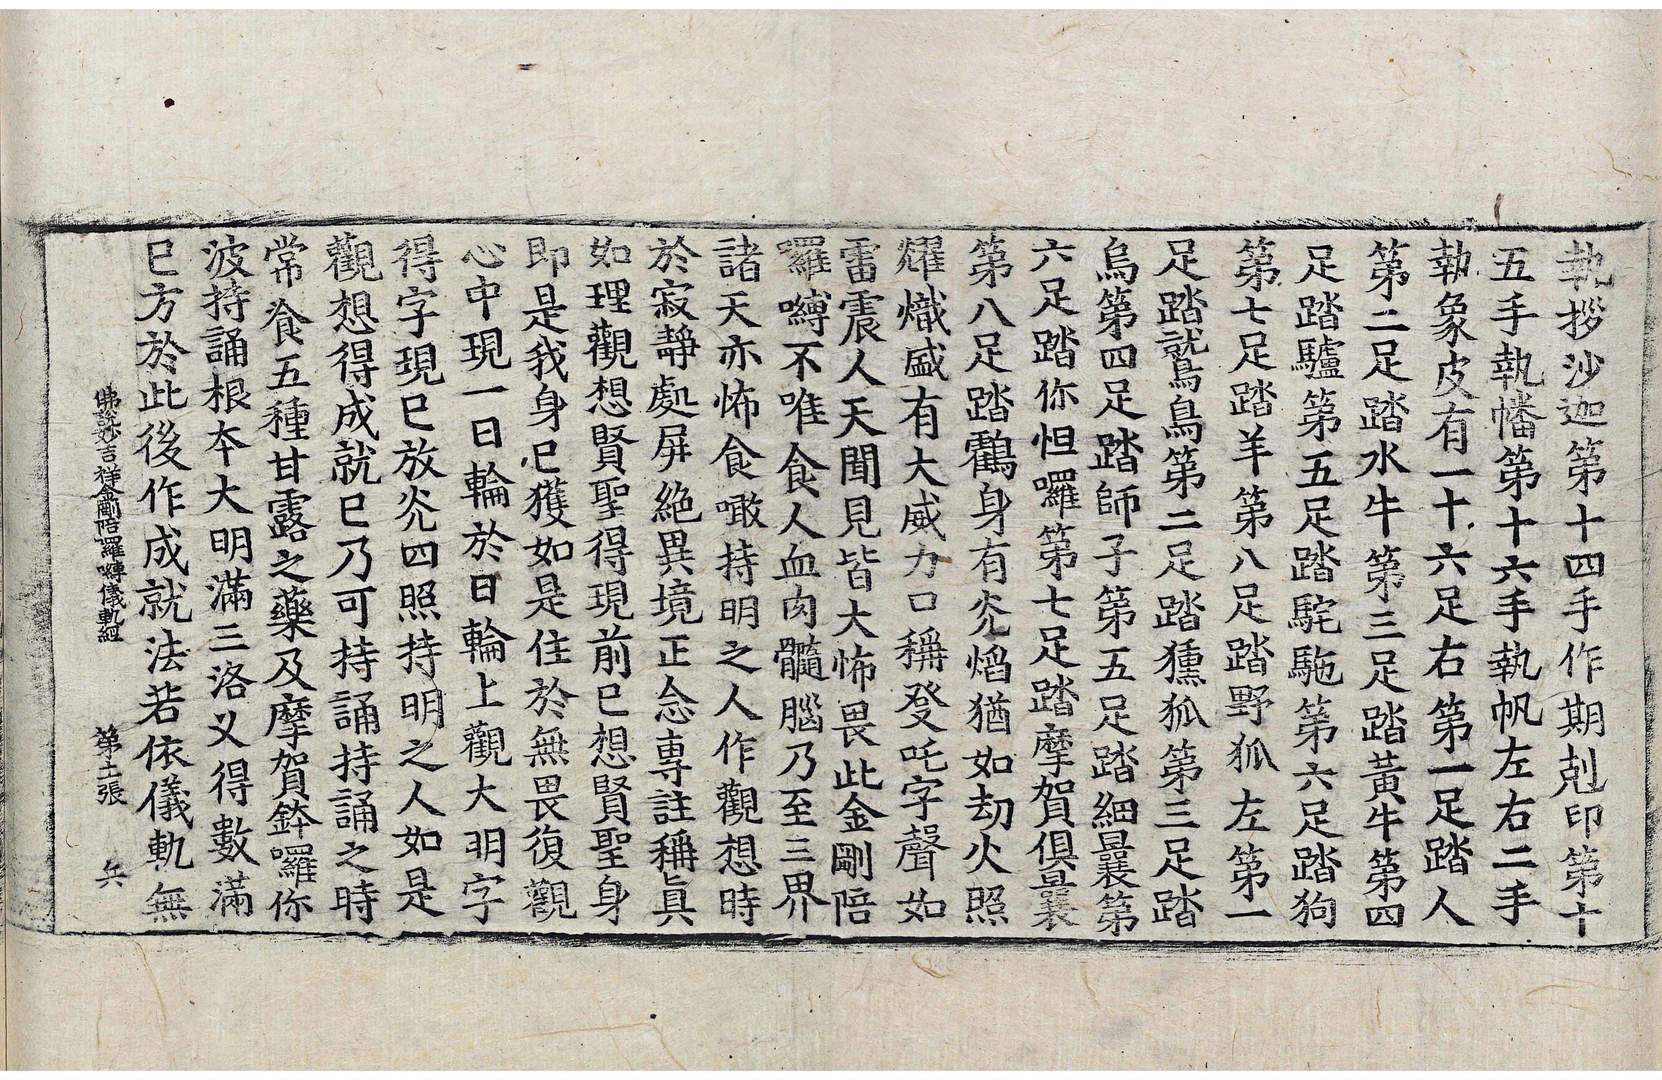 執拶沙迦第十四手作期剋印第十
五手執幡第十六手執帆左右二手
執象皮有一十六足右第一足踏人
第二足踏水牛第三足踏黃牛第四
足踏驢第五足踏駝駞第六足踏狗
第七足踏羊第八足踏野狐左第一
足踏鷲鳥第二足踏獯狐第三足踏
烏第四足踏師子第五足踏細曩第
六足踏你怛囉第七足踏摩賀俱曩
第八足踏鸖身有光焰猶如劫火照
耀熾盛有大威力口稱登吒字聲如
雷震人天聞見皆大怖畏此金剛陪
囉嚩不唯食人血肉髓腦乃至三界
諸天亦怖食噉持明之人作觀想時
於寂靜處屏絶異境正念專註稱眞
如理觀想賢聖得現前已想賢聖身
即是我身已獲如是住於無畏復觀
心中現一日輪於日輪上觀大明字
得字現已放光四照持明之人如是
觀想得成就已乃可持誦持誦之時
常飡五種甘露之藥及摩賀鉢囉你
波持誦根本大明滿三洛义得數滿
已方於此後作成就法若依儀軌無
佛說妙吉祥金剛陪囉嚩儀軌經 第十二張 兵